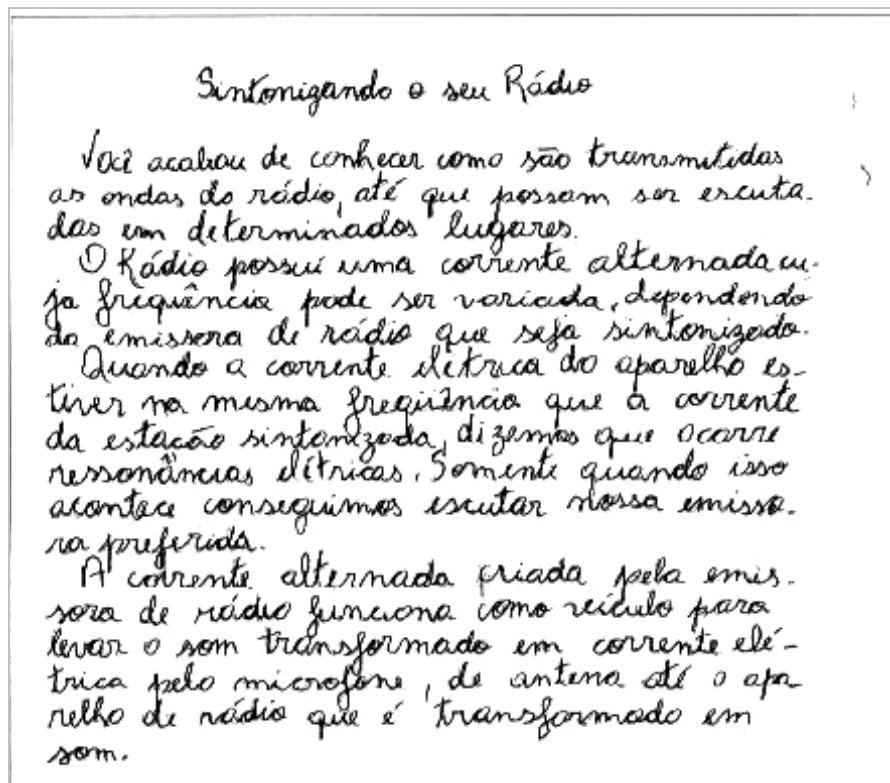 Sintonizando o seu Rádio
Você acabou de conhecer como são transmitidas
as ondas do rádio, até que possam ser escuta-
das em determinados lugares.
O Rádio possui uma corrente alternada cu-
ja freqüência pode ser variada, dependendo
da emissora de rádio que seja sintonizado.
Quando a corrente elétrica do aparelho es-
tiver na mesma freqüência que a corrente
da estação sintonizada, dizemos que ocorre
ressonâncias elétricas. Somente quando isso
acontece conseguimos escutar nossa emisso-
ra preferida.
A corrente alternada criada pela emis-
sora de rádio funciona como veículo para
levar o som transformado em corrente elé-
trica pelo microfone, de antena até o apa-
relho de rádio que é transformado em
som.